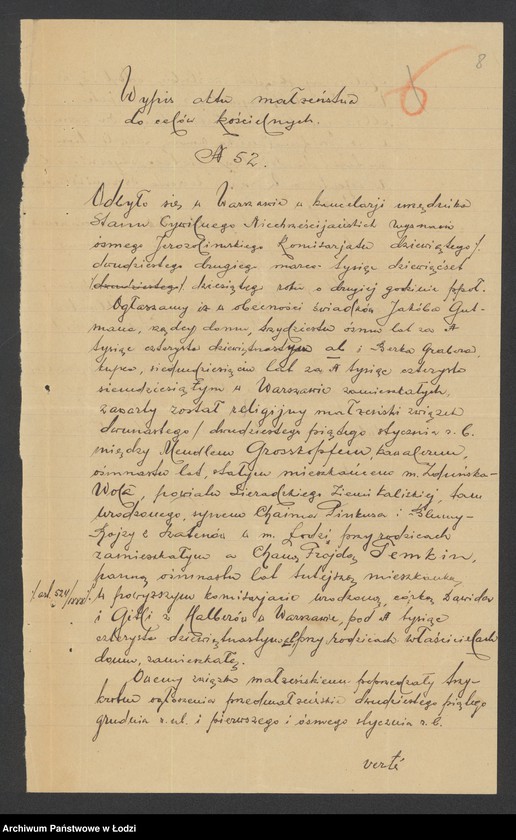 8
6
Wypis aktu małżeństwa
do celów kościelnych.
№ 52.
Odbyło się w Warszawie w kancelarji urzędnika
Stanu Cywilnego Niechrześcijańskich Wyznań
ósmego Jerozolimskiego Komisarjatu dziewiątego/
dwudziestego drugiego marca tysiąc dziewięćset
/dwudziestego/ dziesiątego roku o drugiej godzinie popoł.
Ogłaszamy iż w obecności świadków Jakóba Gut-
mana, rządcy domu, trzydziestu ośmiu lat za №
tysiąc czterysta dziewiętnastym a) i Berka
kupca, siedmdziesięciu lat za № tysiąc czterysta
siemdziesiątym w Warszawie zamieszkałych,
zawarty został religijny małżeński związek
dwunastego/ dwudziestego piątego stycznia r. b.
między Mendlem Grosskopfem, kawalerem,
ośmnastu lat, stałym mieszkańcem m. Zduńska-
Wola, powiatu Sieradzkiego Ziemi Kaliskiej, tam
urodzonego, synem Chaima Pinkusa i
Rojzy z w m. Łodzi, przy rodzicach
zamieszkałym a Chaną Frajdą Temkin,
panną ośmnastu lat tutejszą mieszkanką
w powyższym komisarjacie urodzoną, córką Dawida
/art. 524/
i Gitli z Halberów w Warszawie, pod № tysiąc
czterysta dziewiętnastym przy rodzicach właścicielach
domu, zamieszkałą.
Owemu związku małżeńskiemu poprzedzały trzy-
krotne ogłoszenia przedmałżeńskie dwudziestego piątego
grudnia r. ub. i pierwszego i ósmego stycznia r. b.
verte
Archiwum Państwowe w Łodzi